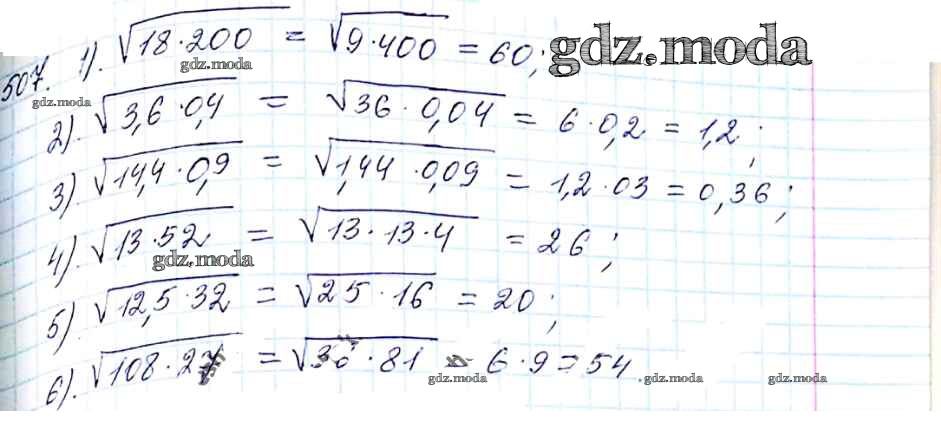 507. 1). √18·200 = √9·400 = 60; gdz.moda
gdz.moda
gdz.moda
2). √3,6·0,4 = √36·0,04 = 6·0,2 = 1,2;
3) √14,4·0,9 = √1,44·0,09 = 1,2·03 = 0,36;
4). √13·52 = √13·13·4 = 26;
gdz.moda
5) √12,5·32 = √25·16 = 20;
6). √108·27 = √36·81 = 6·9 = 54
gdz.moda gdz.moda gdz.moda